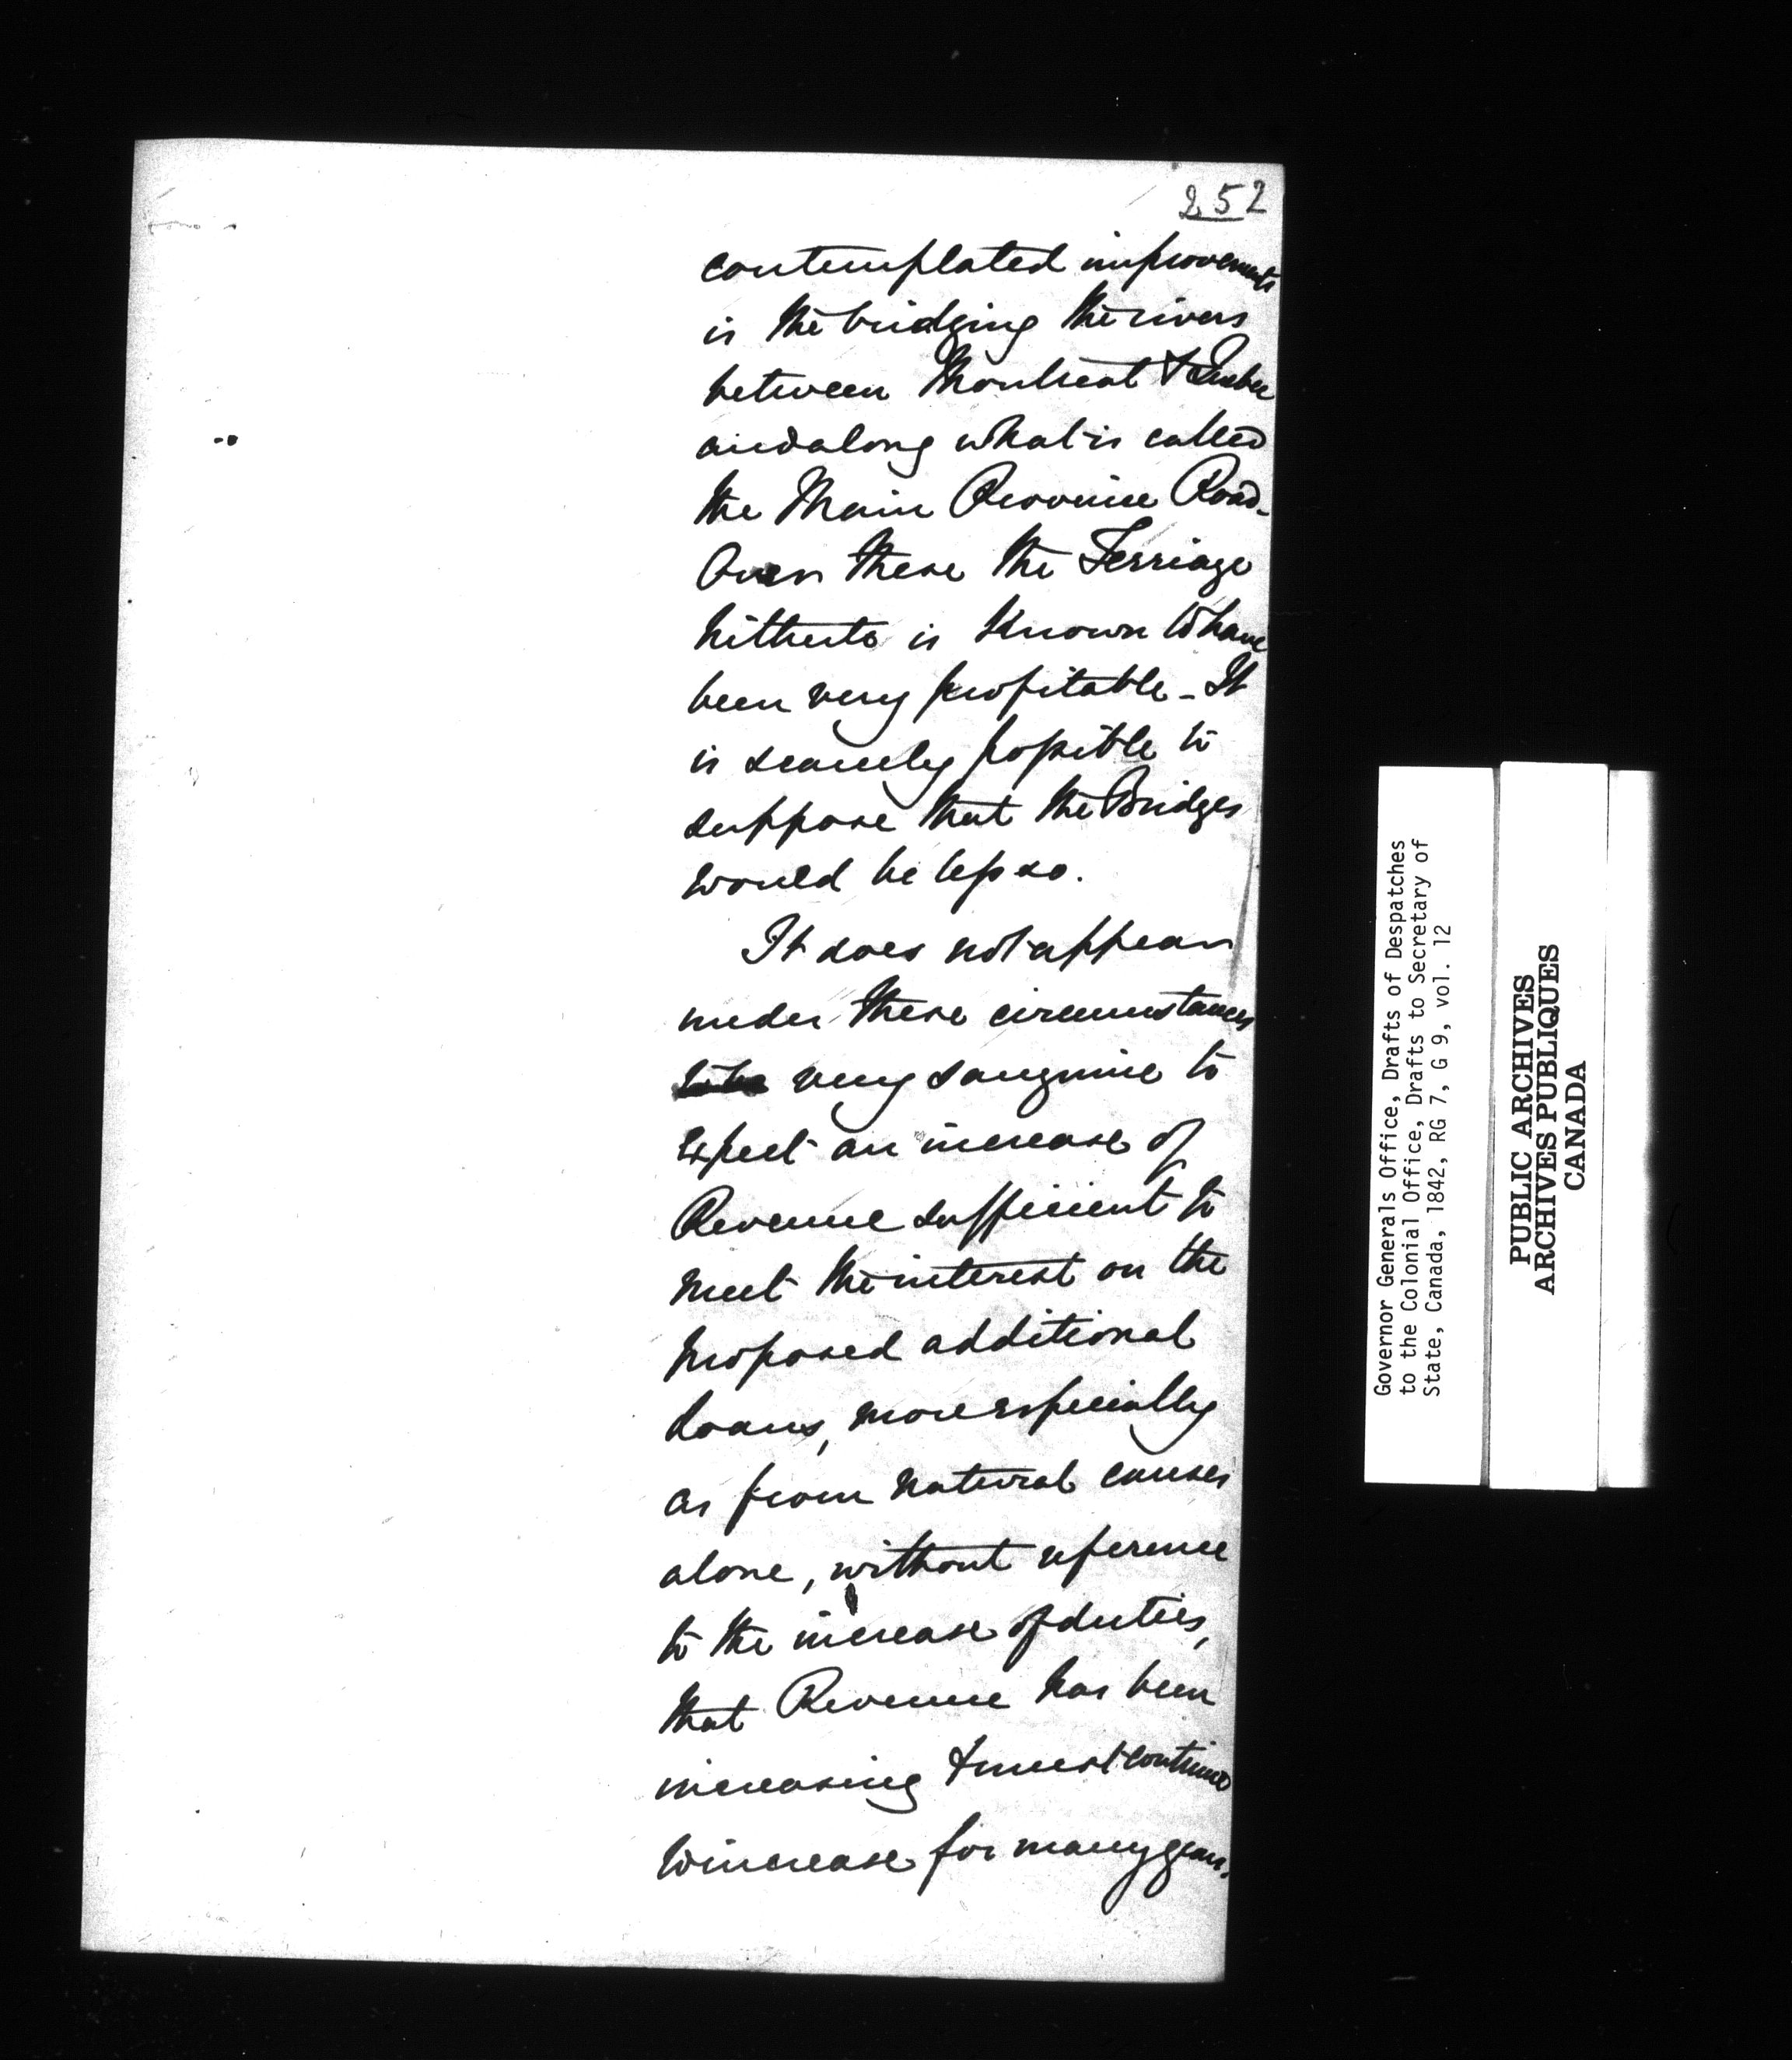 252
contemplated improvements
is the bridging the rivers
between Montreal & Quebec
and along what is called
the Main Province Road.
Over these the Ferriage
hitherto is known to have
been very profitable - It
is scarcely possible to
suppose that the Bridges
would be less so.
It does not appear
under these circumstances
to be very sanguine to
expect an increase of
Revenue sufficient to
meet the interest on the
proposed additional
Loans, more especially
as from natural causes
alone, without reference
to the increase of duties,
that Revenue has been
increasing & must continue
to increase for many years.
Governor Generals Office, Drafts of Despatches
to the Colonial Office, Drafts to Secretary of
State, Canada, 1842, RG 7, G 9, vol. 12
PUBLIC ARCHIVES
ARCHIVES PUBLIQUES
CANADA